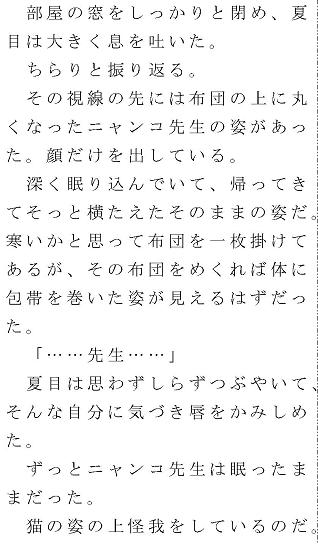 部屋の窓をしっかりと閉め、夏
目は大きく息を吐いた。
　ちらりと振り返る。
　その視線の先には布団の上に丸
くなったニャンコ先生の姿があっ
た。顔だけを出している。
　深く眠り込んでいて、帰ってき
てそっと横たえたそのままの姿だ。
寒いかと思って布団を一枚掛けて
あるが、その布団をめくれば体に
包帯を巻いた姿が見えるはずだっ
た。
　「……先生……」
　夏目は思わずしらずつぶやいて、
そんな自分に気づき唇をかみしめ
た。
　ずっとニャンコ先生は眠ったま
まだった。
　猫の姿の上怪我をしているのだ。